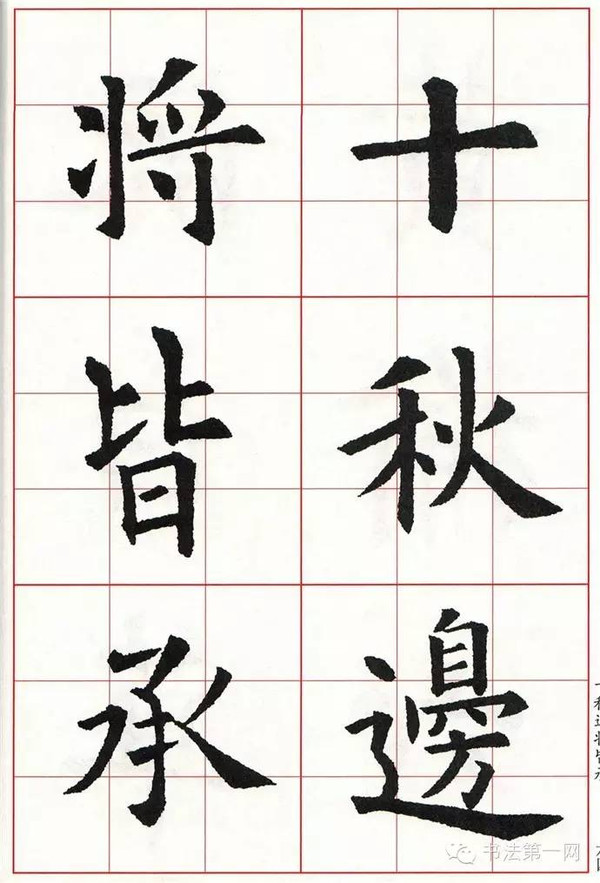 十秋邊
将皆承
书法第一网